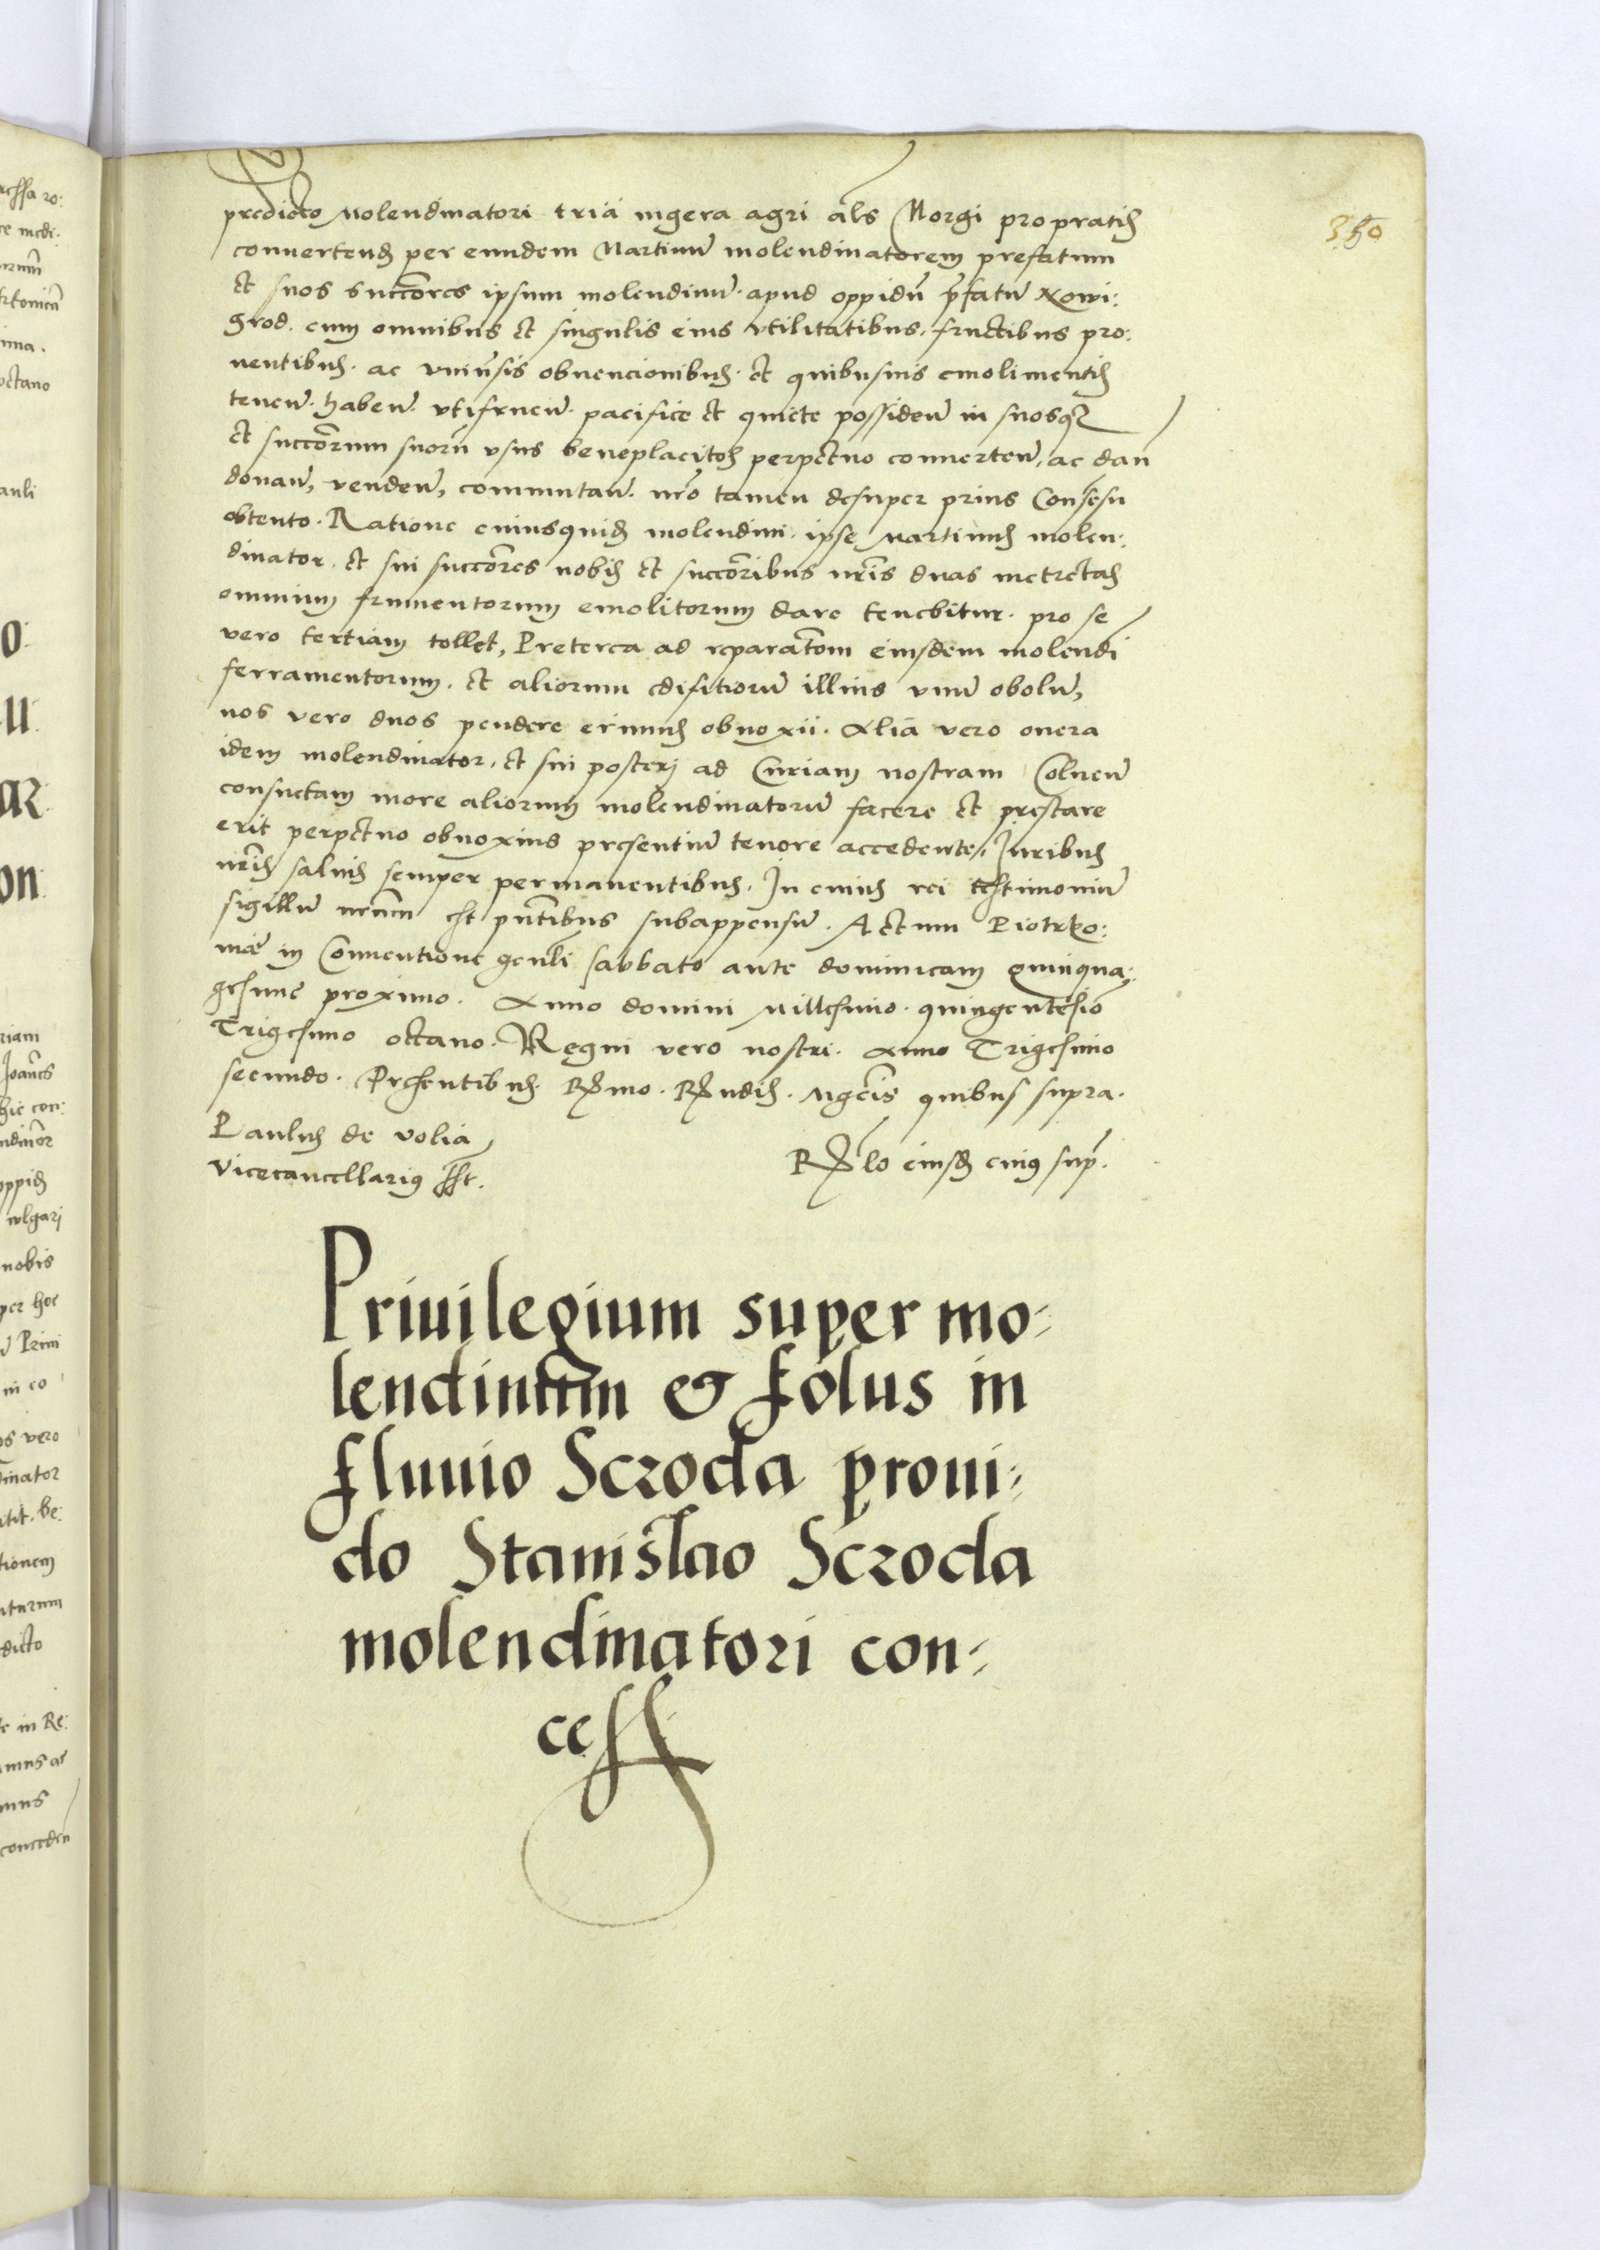 350
predicto Molendinatori tria iugera agri al̃s Morgi pro pratis
conuertend̃ per eundem Martinũ molendinatorem prefatum
et suos succõres ipsum molendinũ apud oppidũ p̃fatũ Nowi:
grod. cum omnibus et singulis eius vtilitatibus. fructibus pro:
uentibus. ac vniũsis obuencionibus. et quibusuis emolimentis
tenen̄. haben̄. vtifruen̄. pacifice et quiete possiden̄ in suosq3
et succõrum suorũ vsus beneplacitos perpetuo conuerten̄, ac dan̄
donan̄, venden̄, commutan̄. nr̃o tamen desuper prius Consẽsu
obtento. Ratione cuiusquid̃ molendini. ipse Martinus molen:
dinator. et sui succõres nobis et succõribus nr̃is duas metretas
omnium frumentorum emolitorum dare tenebitur. pro se
vero tertiam tollet, Preterea ad reparatõem eiusdem molendi
ferramentorum. et aliorum edifitiorũ illius vnũ obolũ,
nos vero duos pendere erimus obnoxii. Alia vero onera
idem molendinator, et sui posteri ad Curiam nostram Colnen̄
consuetam more aliorum molendinatorũ facere et prestare
erit perpetuo obnoxius presentiũ tenore accedente, Iuribus
nr̃is saluis semper permanentibus. In cuius rei testimoniũ
sigillũ nr̃um est pñtibus subappensũ. Actum Piotrko:
uiæ in Conuentione gen̄li sabbato ante dominicam quinqua:
gesimẽ proximo. Anno domini Millesimo. quingentesiõ
Trigesimo octauo. Regni vero nostri. Anno Trigesimo
secundo. Presentibus. R̃mo. R̃ndis. Mg̃cis quibus supra.
Paulus de volia
Vicecancellarius sst.
R̃lo eiusd̃ cuius sup̃.
Priuilegium super mo-
lendinum & folus in
fluuio Scroda proui-
do Stanislao Scroda
molendinatori con-
cess